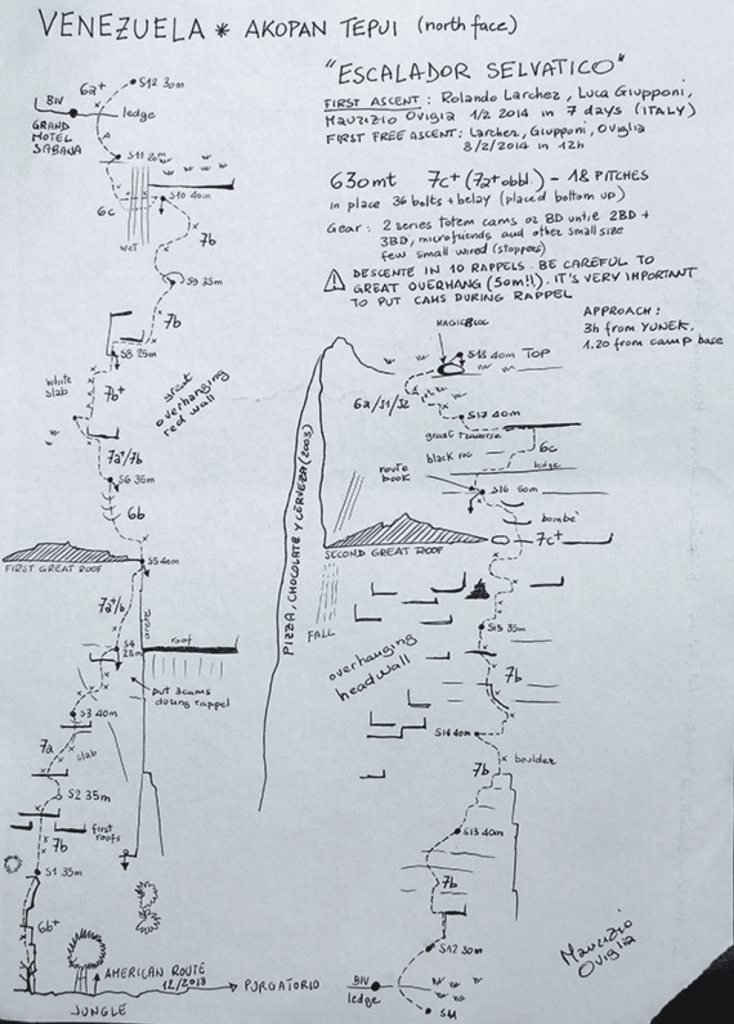 VENEZUELA * AKOPAN TEPUI (north face)
"ESCALADOR SELVATICO"
FIRST ASCENT: Rolando Larcher, Luca Giupponi,
Maurizio Oviglia 1/2 2014 in 7 days (ITALY)
FIRST FREE ASCENT: Larcher, Giupponi, Oviglia
8/2/2014 in 12h
630mt 7c+ (7a+ obbl.) - 18 PITCHES
in place 36 bolts + belay (placed bottom up)
Gear: 2 series totem cams or BD until 2BD +
3BD, microfriends and other small size
few small wired (stoppers)
DESCENTE IN 10 RAPPELS. BE CAREFUL TO
GREAT OVERHANG (50m!!). IT'S VERY IMPORTANT
TO PUT CAMS DURING RAPPEL
APPROACH:
3h from YUNEK,
1.20 from camp base
S12 30m
6a+
BIV
ledge
GRAND
HOTEL
SABANA
S11 20m
S10 40m
6c
WET
7b
S9 35m
7b
S8 25m
white
slab
7b+
great
overhanging
red wall
7a+/7b
S6 35m
6b
S5 40m
FIRST GREAT ROOF
7a+/b
S4
25m
roof
put 3 cams
during rappel
S3 40m
7a
slab
S2 35m
first
roofs
7b
S1 35m
6b+
AMERICAN ROUTE
12/2013
PURGATORIO
JUNGLE
MAGIC BLOC
S18 40m TOP
6a/J1/J2
S17 40m
great traverse
black roc
6c
ledge
route
book
S16 50m
bombé
7c+
SECOND GREAT ROOF
PIZZA, CHOCOLATE Y CERVEZA (2003)
FALL
S15 35m
overhanging
headwall
7b
S14 40m
boulder
7b
S13 40m
7b
S12 30m
BIV
ledge
S11
Maurizio
Oviglia